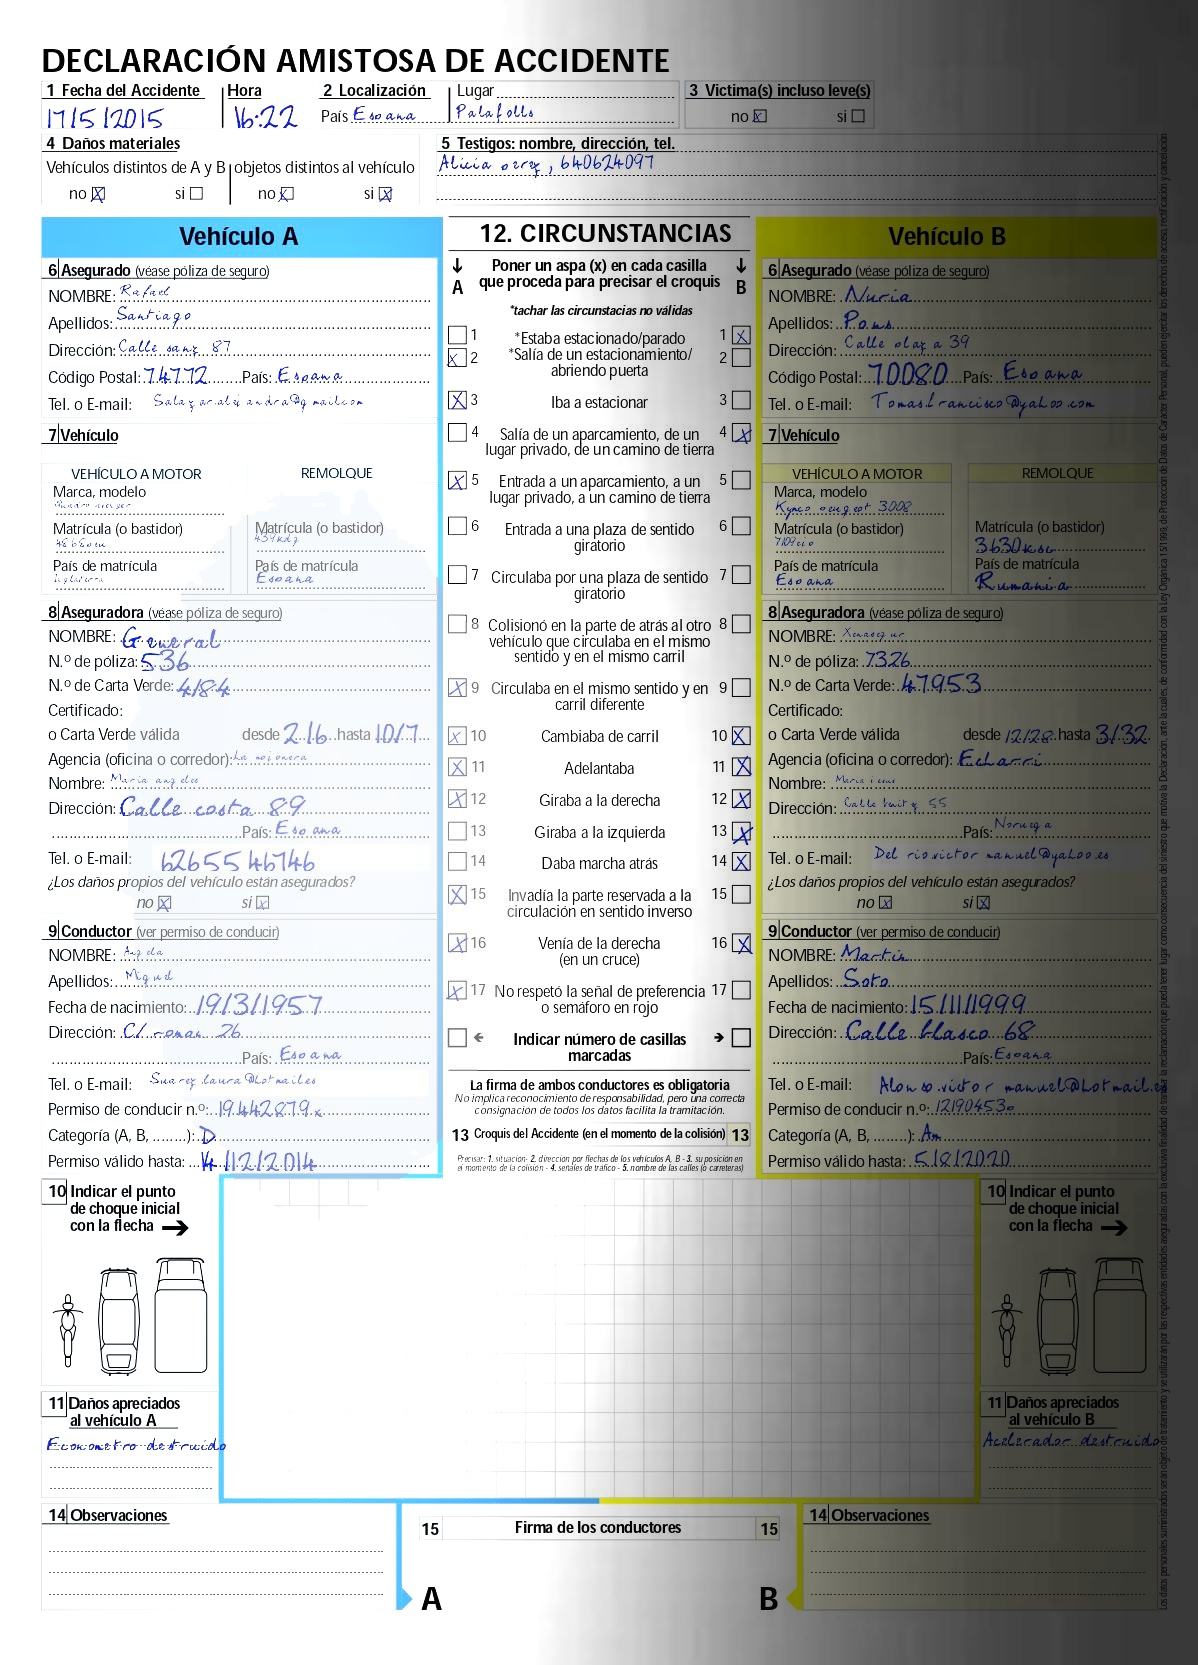 DECLARACIÓN AMISTOSA DE ACCIDENTE
1 Fecha del Accidente Hora 2 Localización Lugar 3 Victima(s) incluso leve(s)
17/5/2015 16:22 País Espana Palafolls no X si
4 Daños materiales 5 Testigos: nombre, dirección, tel.
Vehículos distintos de A y B objetos distintos al vehículo Alicia perez, 640624097
no X si no X si X
Vehículo A
6 Asegurado (véase póliza de seguro)
NOMBRE: Rafael
Apellidos: Santiago
Dirección: Calle sanz 87
Código Postal: 74772 País: Espana
Tel. o E-mail: Salazar.alejandra@gmail.com
7 Vehículo
VEHÍCULO A MOTOR REMOLQUE
Marca, modelo
Matrícula (o bastidor) Matrícula (o bastidor)
País de matrícula País de matrícula
Inglaterra Espana
8 Aseguradora (véase póliza de seguro)
NOMBRE: General
N.º de póliza: 536
N.º de Carta Verde: 4184
Certificado:
o Carta Verde válida desde 2/6 hasta 10/7
Agencia (oficina o corredor): La mojonera
Nombre: Maria angeles
Dirección: Calle costa 89
País: Espana
Tel. o E-mail: 6265546746
¿Los daños propios del vehículo están asegurados?
no X si X
9 Conductor (ver permiso de conducir)
NOMBRE: Angela
Apellidos: Miguel
Fecha de nacimiento: 19/3/1957
Dirección: C/. roman 26
País: Espana
Tel. o E-mail: Suarez.laura@hotmail.es
Permiso de conducir n.º: 19442879x
Categoría (A, B, ........): D
Permiso válido hasta: 14/12/2014
12. CIRCUNSTANCIAS
A Poner un aspa (x) en cada casilla B
que proceda para precisar el croquis
*tachar las circunstacias no válidas
1 *Estaba estacionado/parado 1 X
X 2 *Salía de un estacionamiento/ 2
abriendo puerta
X 3 Iba a estacionar 3
4 Salía de un aparcamiento, de un 4 X
lugar privado, de un camino de tierra
X 5 Entrada a un aparcamiento, a un 5
lugar privado, a un camino de tierra
6 Entrada a una plaza de sentido 6
giratorio
7 Circulaba por una plaza de sentido 7
giratorio
8 Colisionó en la parte de atrás al otro 8
vehículo que circulaba en el mismo
sentido y en el mismo carril
X 9 Circulaba en el mismo sentido y en 9
carril diferente
X 10 Cambiaba de carril 10 X
X 11 Adelantaba 11 X
X 12 Giraba a la derecha 12 X
13 Giraba a la izquierda 13 X
14 Daba marcha atrás 14 X
X 15 Invadía la parte reservada a la 15
circulación en sentido inverso
X 16 Venía de la derecha 16 X
(en un cruce)
X 17 No respetó la señal de preferencia 17
o semáforo en rojo
Indicar número de casillas
marcadas
La firma de ambos conductores es obligatoria
No implica reconocimiento de responsabilidad, pero una correcta
consignacion de todos los datos facilita la tramitación.
13 Croquis del Accidente (en el momento de la colisión) 13
Precisar: 1. situación- 2. direccion por flechas de los vehículos A, B - 3. su posición en
el momento de la colisión - 4. señales de tráfico - 5. nombre de las calles (o carreteras)
Vehículo B
6 Asegurado (véase póliza de seguro)
NOMBRE: Nuria
Apellidos: Pons
Dirección: Calle plaza 39
Código Postal: 70080 País: Espana
Tel. o E-mail: Tomas.francisco@yahoo.com
7 Vehículo
VEHÍCULO A MOTOR REMOLQUE
Marca, modelo
Kymco peugeot 3008
Matrícula (o bastidor) Matrícula (o bastidor)
3630ksc
País de matrícula País de matrícula
Espana Rumania
8 Aseguradora (véase póliza de seguro)
NOMBRE: Xenasegur
N.º de póliza: 7326
N.º de Carta Verde: 47953
Certificado:
o Carta Verde válida desde 12/28 hasta 3/32
Agencia (oficina o corredor): Echarri
Nombre: Maria jesus
Dirección: Calle benitez 55
País: Noruega
Tel. o E-mail: Del rio.victor manuel@yahoo.es
¿Los daños propios del vehículo están asegurados?
no X si X
9 Conductor (ver permiso de conducir)
NOMBRE: Martin
Apellidos: Soto
Fecha de nacimiento: 15/11/1999
Dirección: Calle blasco 68
País: Espana
Tel. o E-mail: Alonso.victor manuel@hotmail.es
Permiso de conducir n.º: 12190453
Categoría (A, B, ........): Am
Permiso válido hasta: 5/8/2020
10 Indicar el punto
de choque inicial
con la flecha
11 Daños apreciados
al vehículo A
Econometro destruido
10 Indicar el punto
de choque inicial
con la flecha
11 Daños apreciados
al vehículo B
Acelerador destruido
14 Observaciones
15 Firma de los conductores 15
A B
14 Observaciones